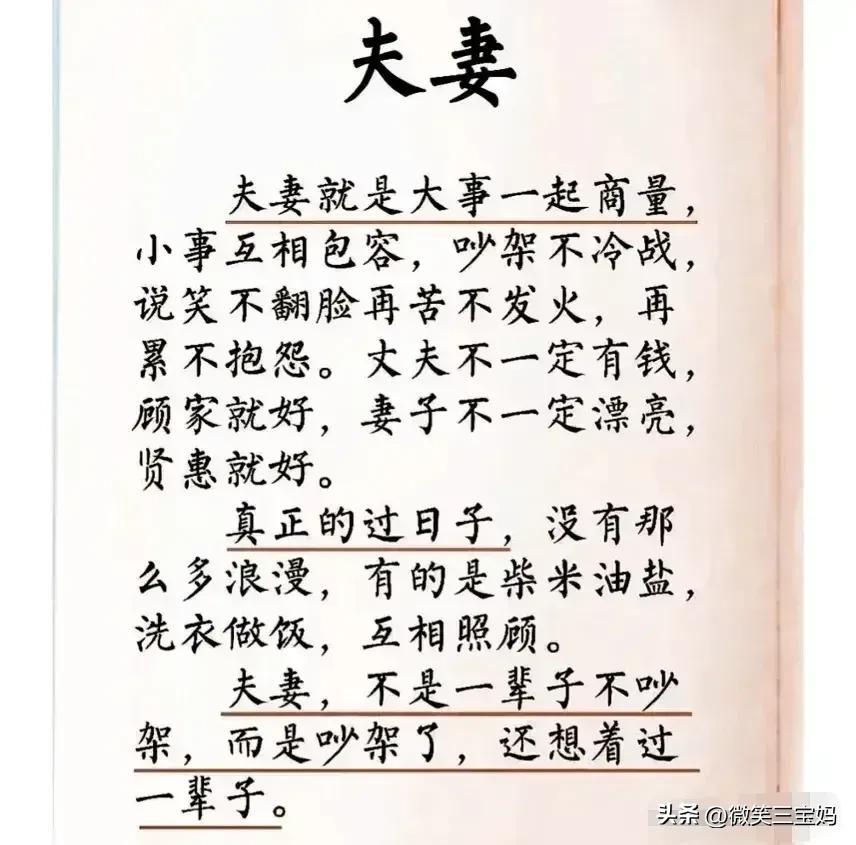 夫妻
夫妻就是大事一起商量，
小事互相包容，吵架不冷战，
说笑不翻脸再苦不发火，再
累不抱怨。丈夫不一定有钱，
顾家就好，妻子不一定漂亮，
贤惠就好。
真正的过日子，没有那
么多浪漫，有的是柴米油盐，
洗衣做饭，互相照顾。
夫妻，不是一辈子不吵
架，而是吵架了，还想着过
一辈子。
头条 @微笑三宝妈